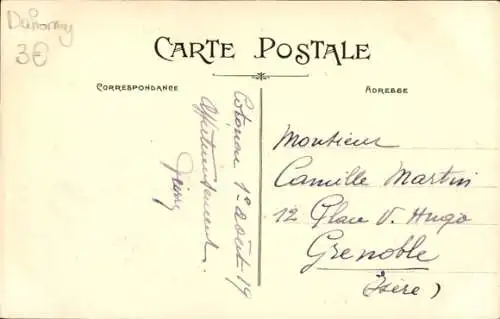 Dahomey
3€
CARTE POSTALE
CORRESPONDANCE
ADRESSE
Cotonou 1er août 19
Affectueusement.
Monsieur
Camille Martin
12 Place V. Hugo
Grenoble
(Isère)